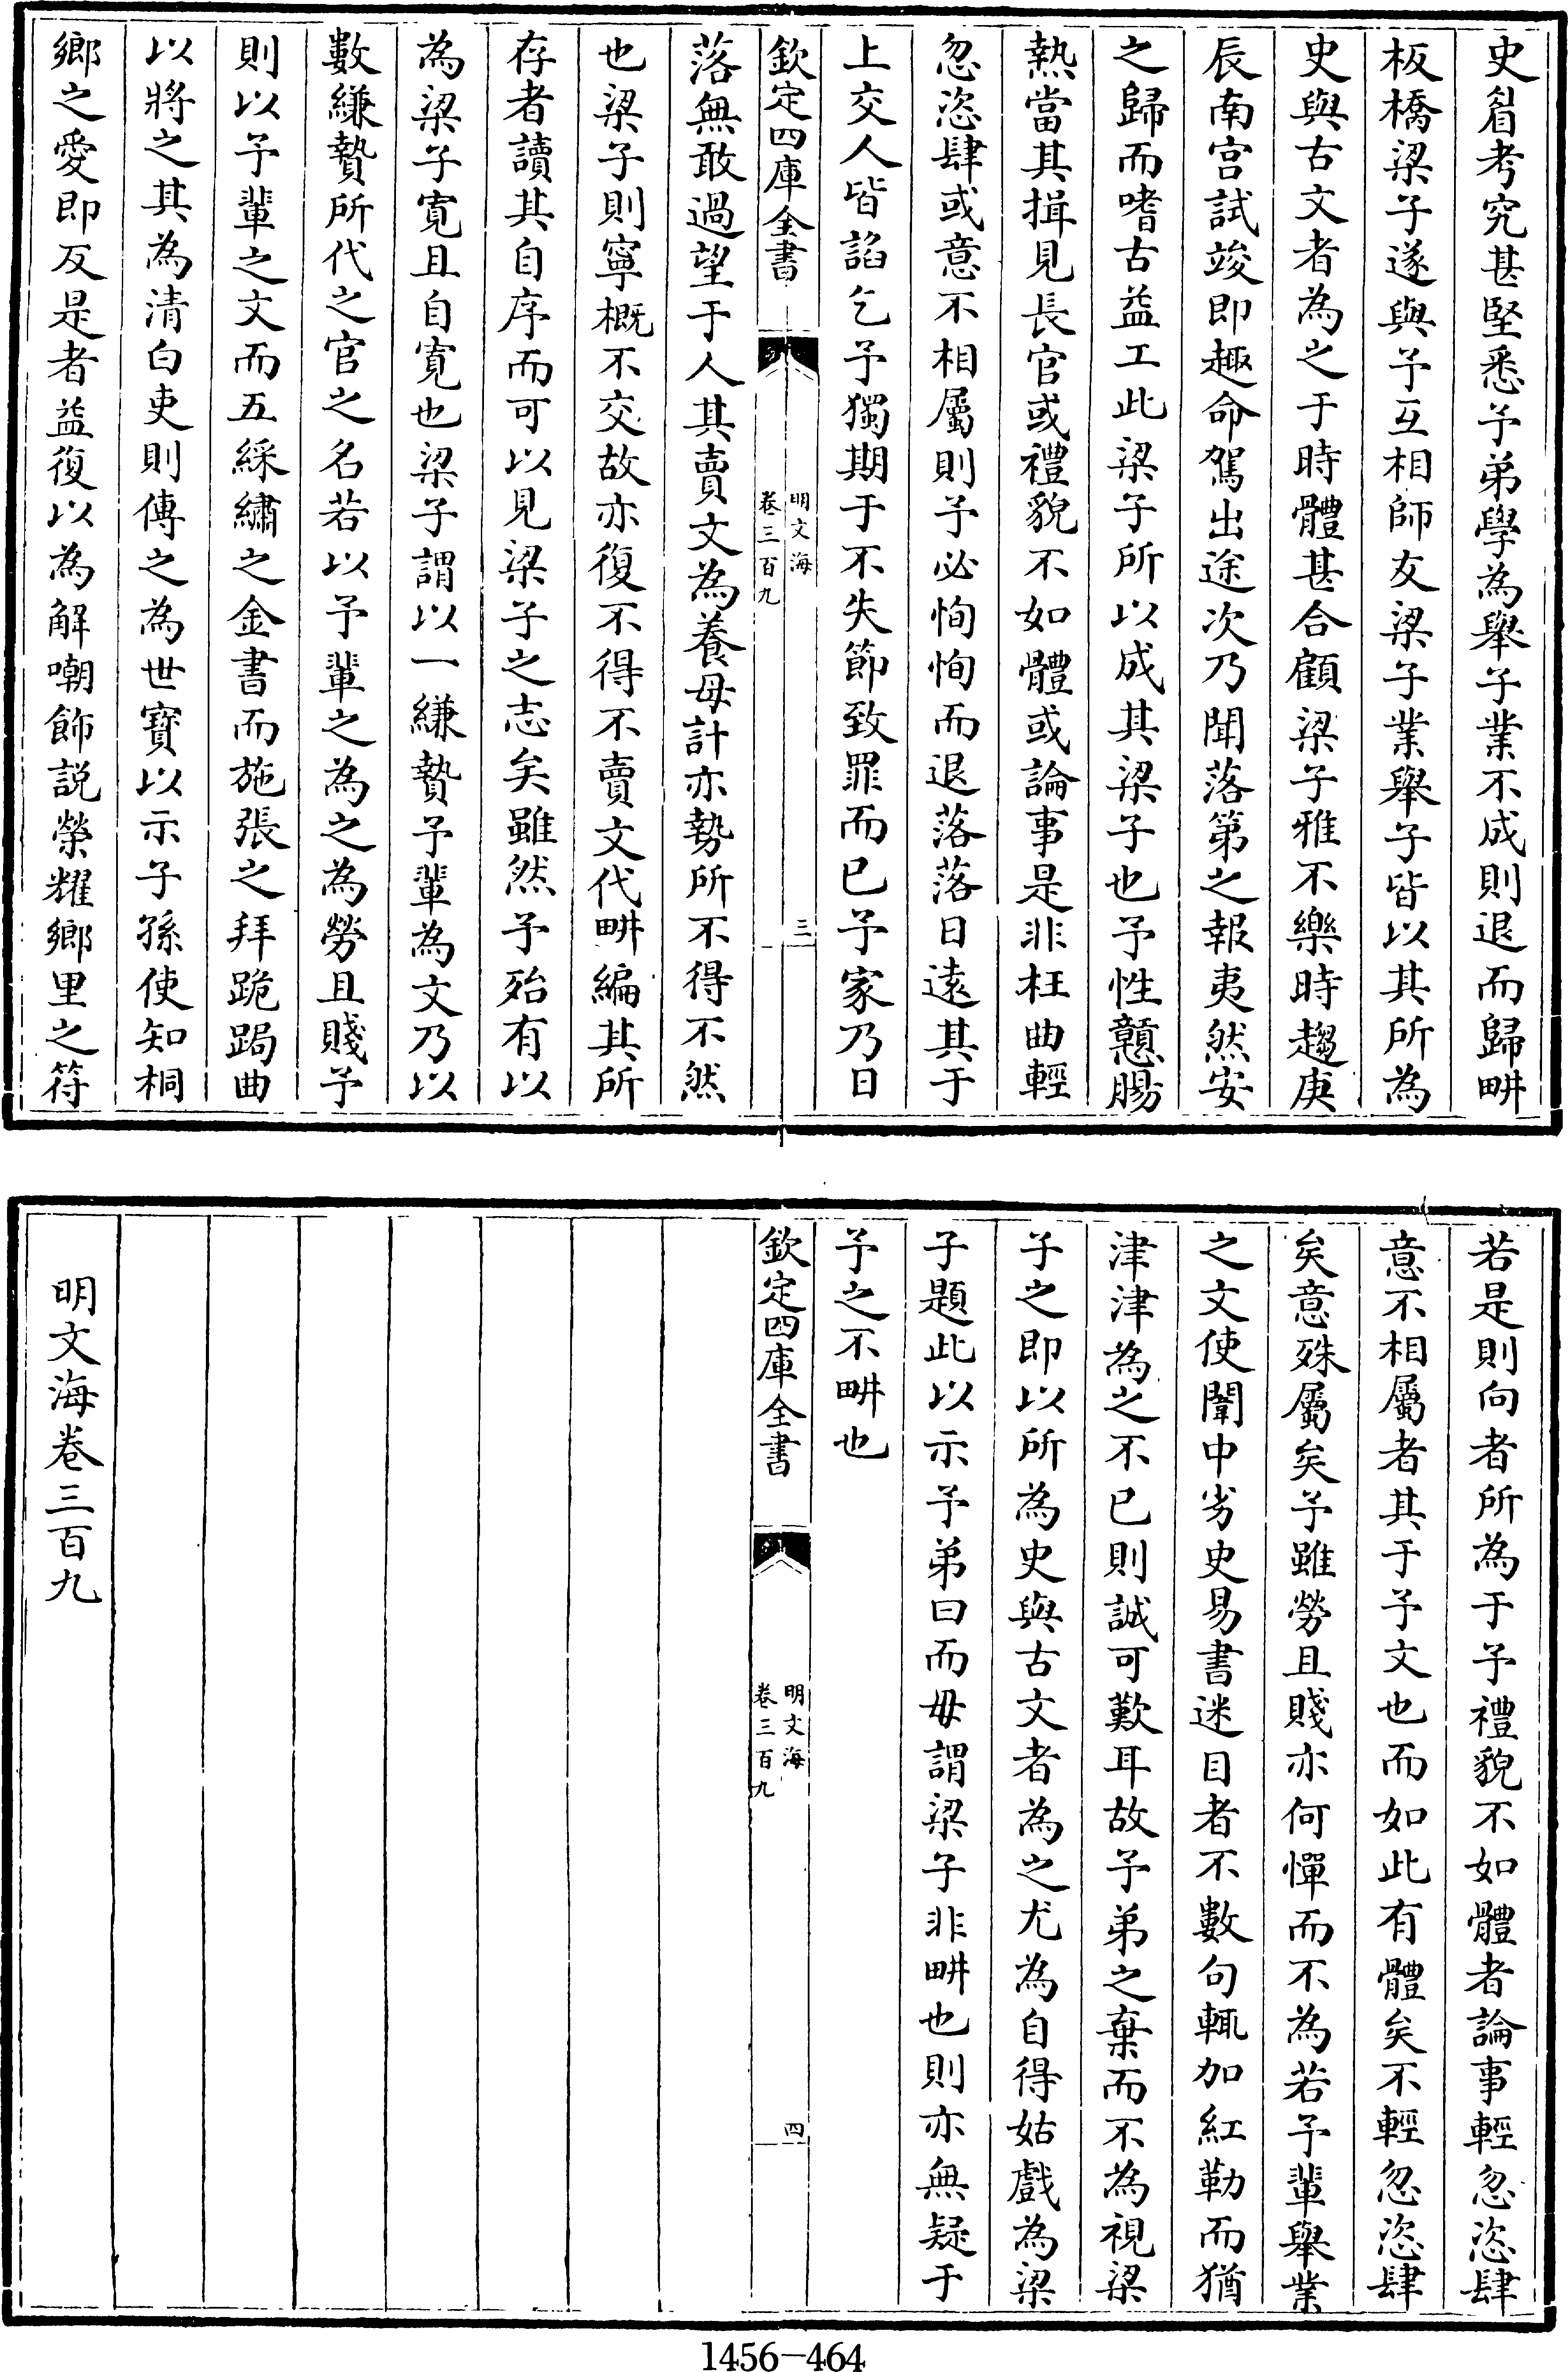 史眉考究甚堅悉予弟學為舉子業不成則退而歸畊
板橋梁子遂與予互相師友梁子業舉子皆以其所為
史與古文者為之于時體甚合顧梁子雅不樂時趨庚
辰南宫試竣即趣命駕出途次乃聞落第之報夷然安
之歸而嗜古益工此梁子所以成其梁子也予性戆腸
熱當其揖見長官或禮貌不如體或論事是非枉曲輕
忽恣肆或意不相屬則予必恂恂而退落落日遠其于
上交人皆諂乞予獨期于不失節致罪而已予家乃日
欽定四庫全書
明文海
卷三百九
三
落無敢過望于人其賣文為養母計亦勢所不得不然
也梁子則寧概不交故亦復不得不賣文代畊編其所
存者讀其自序而可以見梁子之志矣雖然予殆有以
為梁子寛且自寛也梁子謂以一縑贄予輩為文乃以
數縑贄所代之官之名若以予輩之為之為勞且賤予
則以予輩之文而五綵繡之金書而施張之拜跪跼曲
以將之其為清白吏則傳之為世寶以示子孫使知桐
鄉之愛即反是者益復以為解嘲飾説榮耀鄉里之符
若是則向者所為于予禮貌不如體者論事輕忽恣肆
意不相屬者其于予文也而如此有體矣不輕忽恣肆
矣意殊屬矣予雖勞且賤亦何憚而不為若予輩舉業
之文使闈中劣史易書迷目者不數句輒加紅勒而猶
津津為之不已則誠可歎耳故予弟之棄而不為視梁
子之即以所為史與古文者為之尤為自得姑戲為梁
子題此以示予弟曰而毋謂梁子非畊也則亦無疑于
予之不畊也
欽定四庫全書
明文海
卷三百九
四
明文海卷三百九
1456-464